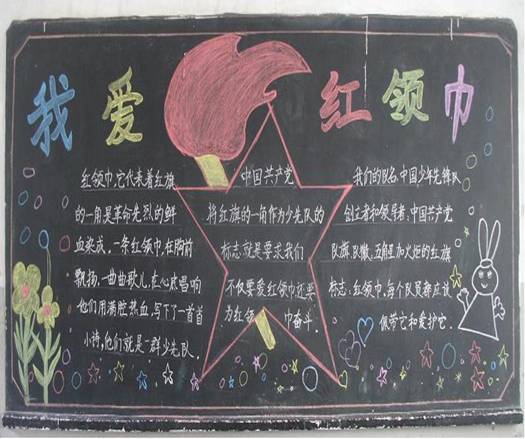 我爱红领巾
红领巾,它代表着红旗
的一角是革命先烈的鲜
血染成。一条红领巾,在胸前
飘扬,一曲曲歌儿,在心底唱响
他们用满腔热血,写下了一首首
小诗,他们就是一群少先队.
中国共产党
将红旗的一角作为少先队的
标志就是要求我们
不仅要爱红领巾还要
为红领巾奋斗.
我们的队名中国少年先锋队
创立者和领导者:中国共产党
队旗、队徽、五角星加火炬的红旗
标志:红领巾,每个队员都应该
佩带它和爱护它.